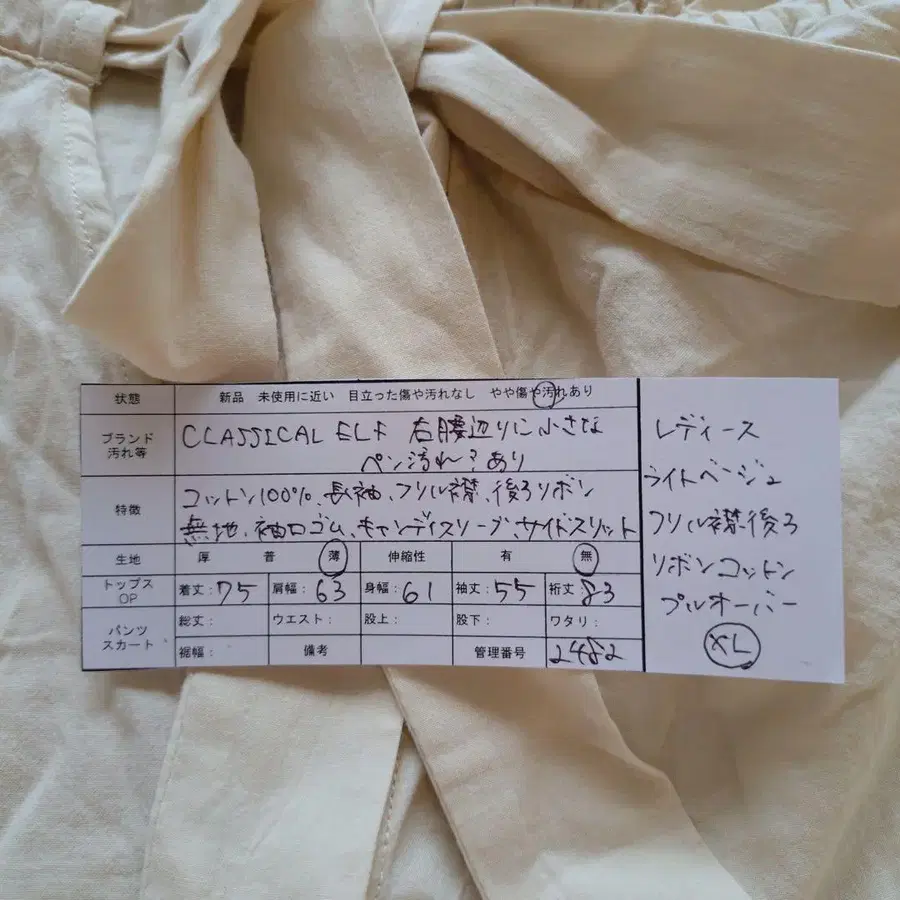 状態 新品 未使用に近い 目立った傷や汚れなし やや傷や汚れあり
ブランド 汚れ等 CLASSICAL ELF 右腰辺りに小さな
ペン汚れ?あり
特徴 コットン100%、長袖、フリル襟、後ろリボン
無地、袖口ゴム、キャンディスリーブ、サイドスリット
生地 厚 普 薄 伸縮性 有 無
トップス OP 着丈:75 肩幅:63 身幅:61 袖丈:55 裄丈:83
パンツ スカート 総丈: ウエスト: 股上: 股下: ワタリ:
裾幅: 備考 管理番号 2482
レディース
ライトベージュ
フリル襟後ろ
リボンコットン
プルオーバー
XL